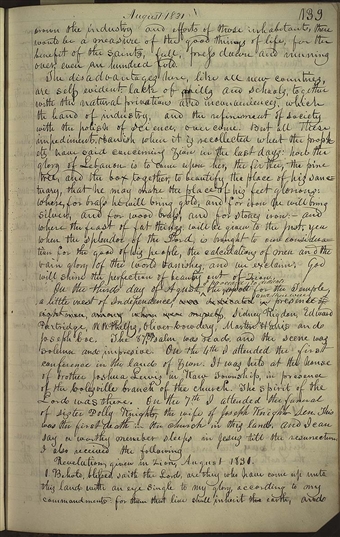 August 1831 139
crown the industry and efforts of those inhabitants, there
would be a measure of the good things of life, for the
benefit of the saints, full, press'd down and running
over, even an hundred fold.
The disadvantages here, like all new countries,
are self evident: lack of mills and schools, together
with the natural privations and inconveniences, which
the hand of industry, and the refinement of society
with the polish of science, overcome. But all these
impediments vanish when it is recollected what the proph-
ets have said concerning Zion in the last days: how the
glory of Lebanon is to come upon her, the fir tree, the pine
tree, and the box together, to beautify the place of his sanc-
tuary, that he may make the place of his feet glorious:
where, for brass he will bring gold, and for iron he will bring
silver, and for wood brass, and for stones iron: and
where the feast of fat things will be given to the just; yea
when the splendor of the Lord, is brought to our considera-
tion for the good of his people, the calculations of men and the
vain glory of the world vanishes; and we exclaim: God
will shine the perfection of beauty out of Zion.
On the third day of August, the spot for the Temple,
a little west of Independence, was dedicated in presence of
eight men, among whom were myself, Sidney Rigdon, Edward
Partridge, W. W. Phelps, Oliver Cowdery, Martin Harris and
Joseph Coe. The 87th psalm was read, and the scene was
solemn and impressive. On the 4th I attended the first
conference in the land of Zion. It was held at the house
of brother Joshua Lewis, in Kaw Township, in presence
of the Colesville branch of the church. The Spirit of the
Lord was there. On the 7th I attended the funeral
of sister Polly Knight, the wife of Joseph Knight Sen. This
was the first death in the church in this land, and I can
say a worthy member sleeps in Jesus till the resurrection.
I also received the following
Revelation, given in Zion, August 1831.
1. Behold, blessed saith the Lord, are they who have come up unto
this land with an eye single to my glory, according to my
commandments: for them that live shall inherit the earth, and